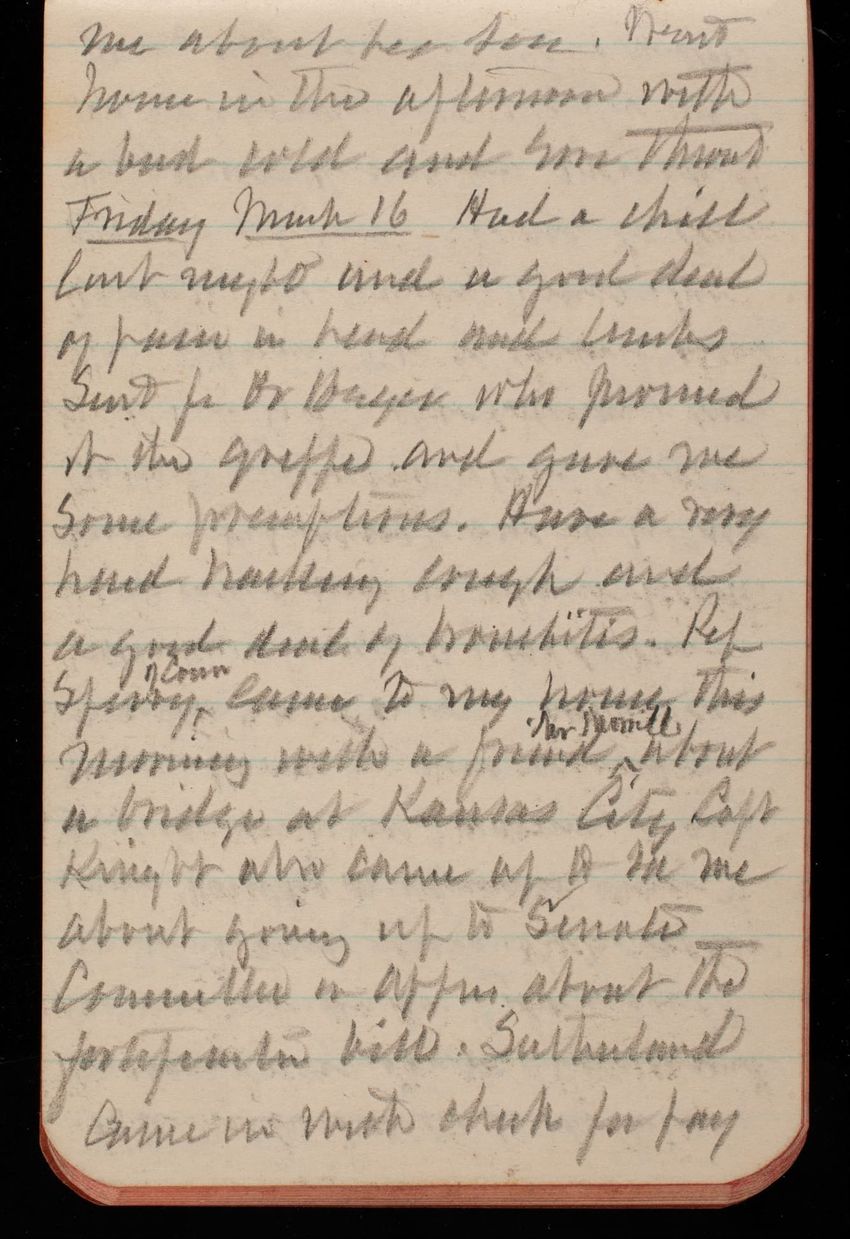 me about her son. Went
home in the afternoon with
a bad cold and sore throat
Friday March 16 Had a chill
last night and a good deal
of pain in head and limbs
Sent for Dr who pronounced
it the grippe and gave me
some prescriptions. Have a very
hard hacking cough and
a good deal of bronchitis. Rep
of Conn
Sperry, came to my home this
Mr Morrill
morning with a friend ^ about
a bridge at Kansas City Capt
Knight also came up to see me
about going up to Senate
Committee on Appns. about the
fortification bill. Sutherland
Came in with check for pay